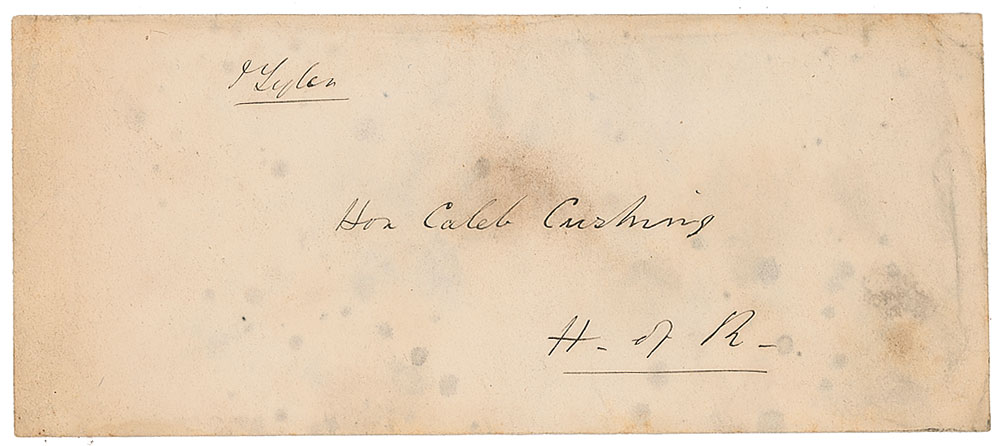 J Tyler
Hon Caleb Cushing
H - of R -